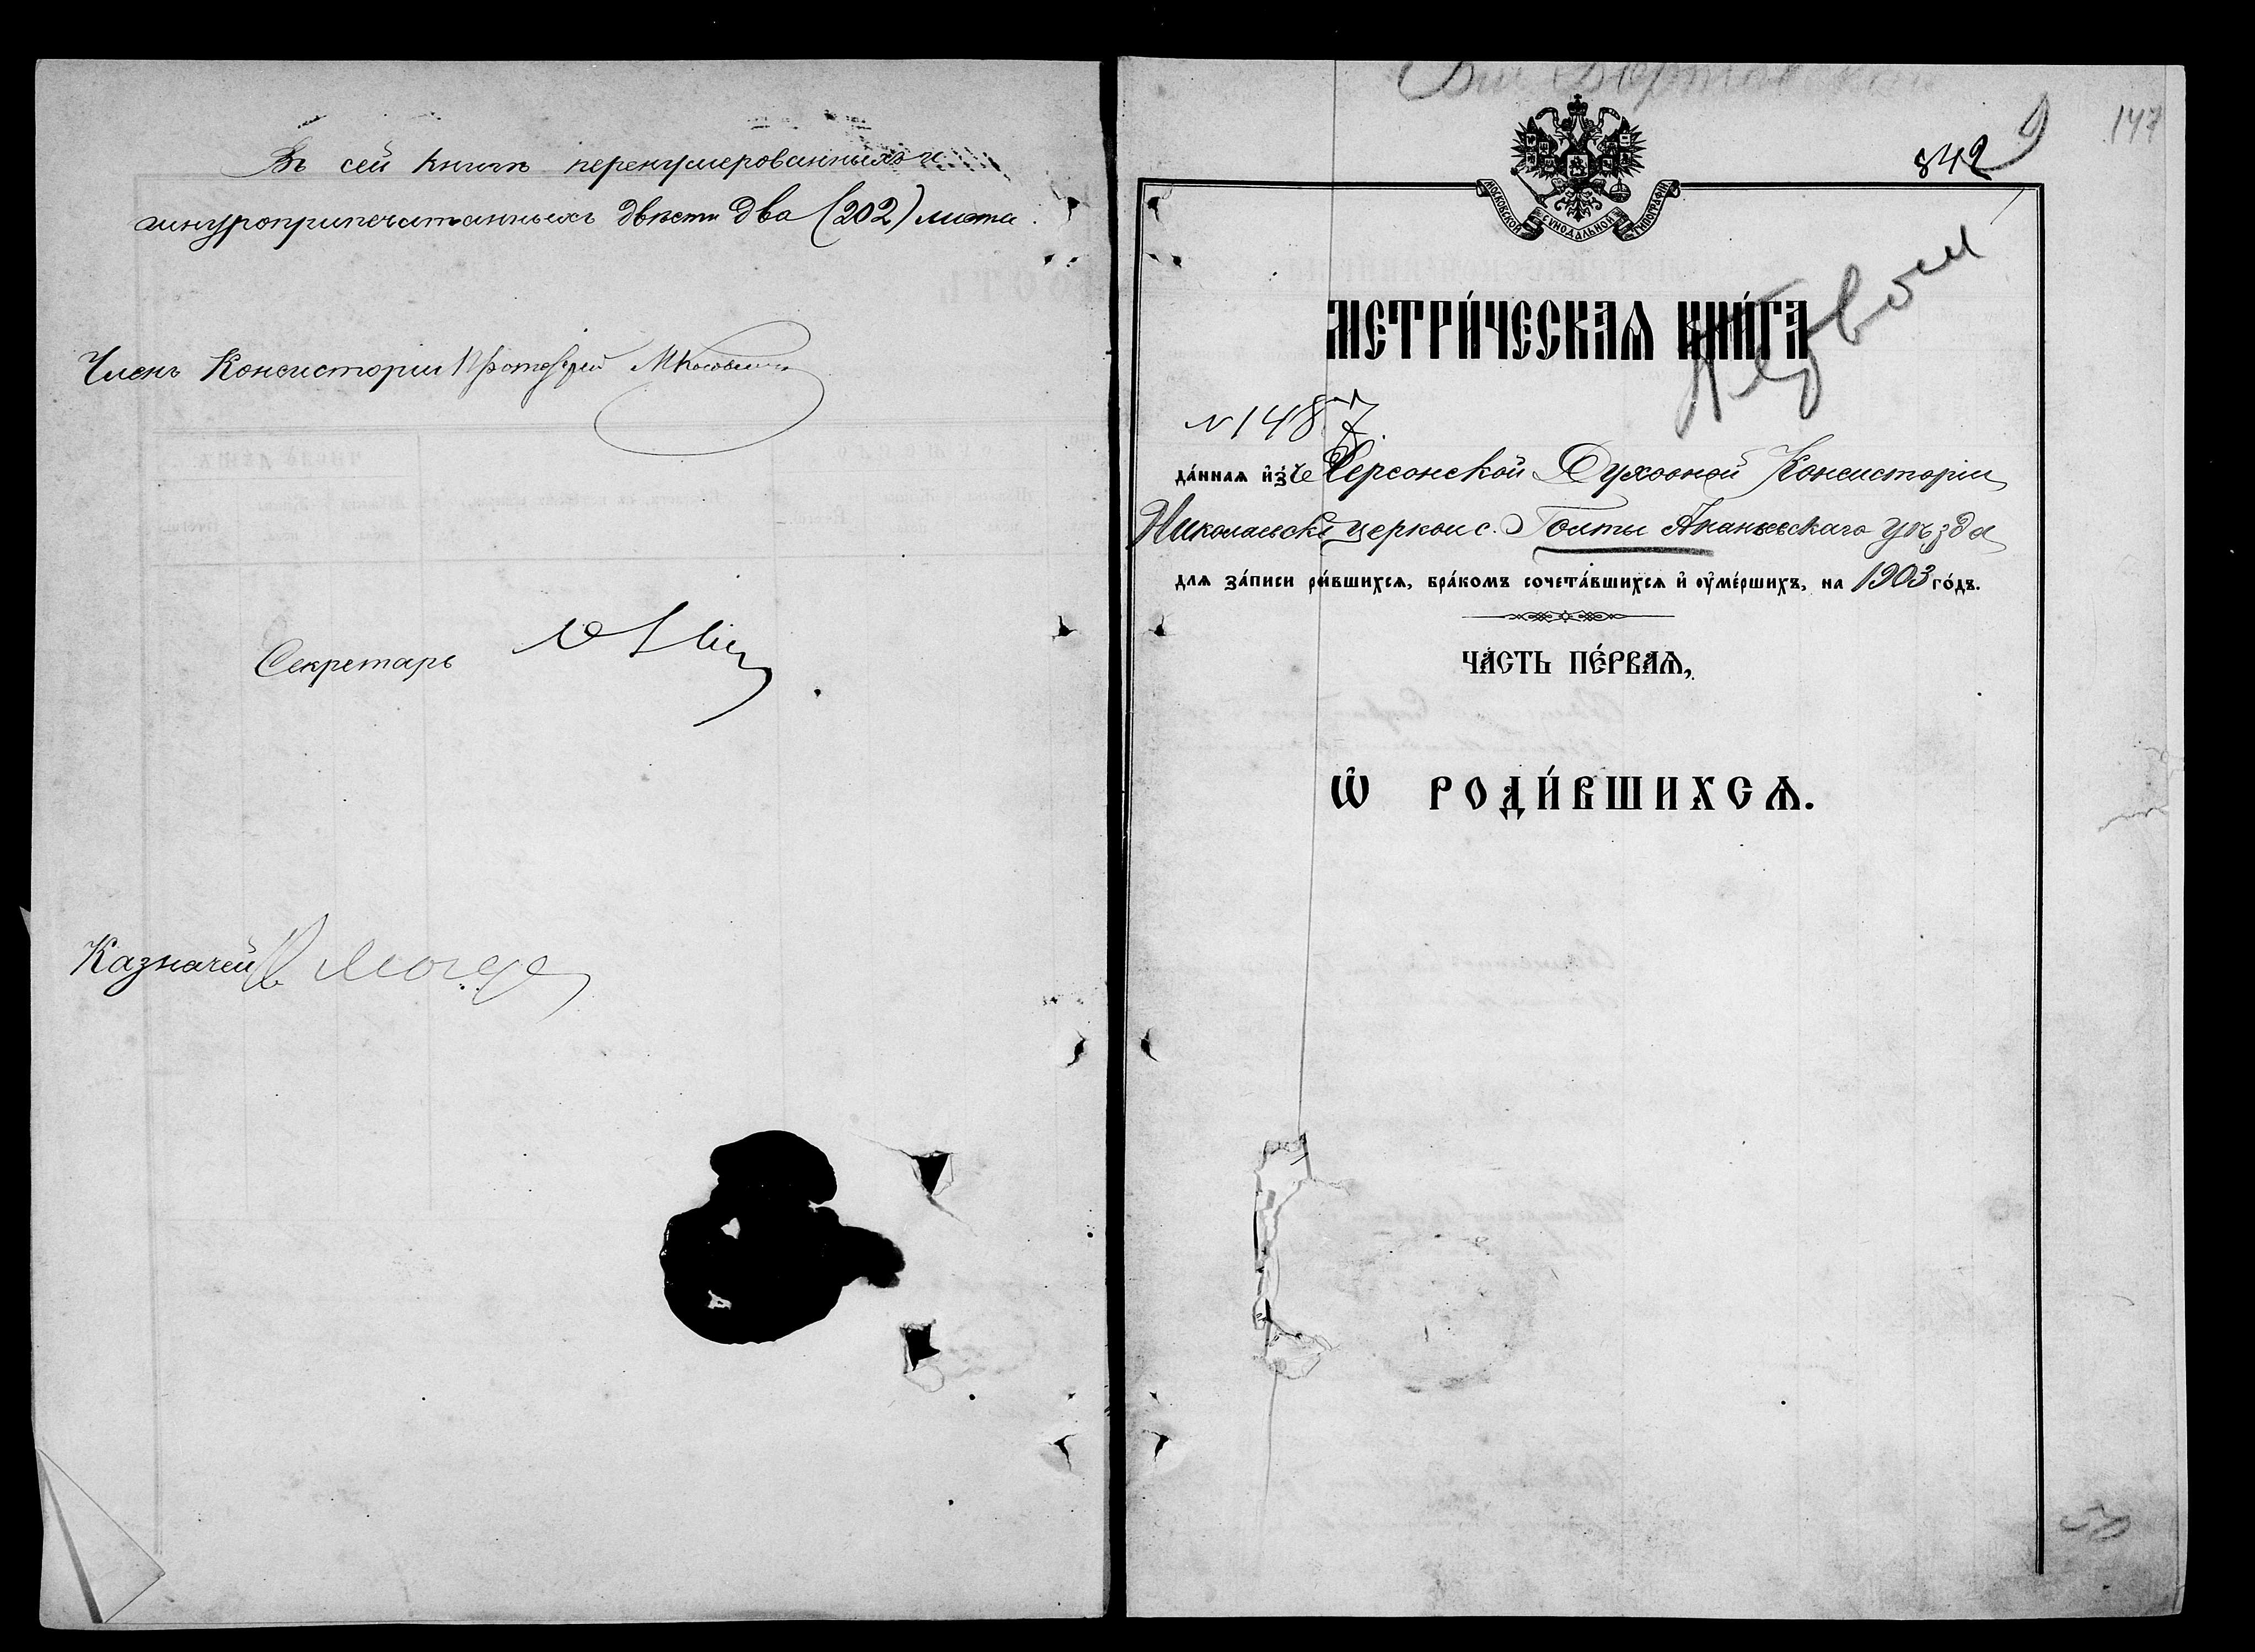 Въ сей книгѣ перенумерованныхъ и
шнуроприпечатанныхъ двѣсти два (202) листа.
Членъ Консисторіи Протоіерей
Секретарь
Казначей
147
842
9
МОСКОВСКОЙ СѴНОДАЛЬНОЙ ТИПОГРАФІИ
МЕТРИ́ЧЕСКАѦ КНИ́ГА
N 1487
да́ннаѧ и҆зъ Херсонской Духовной Консисторіи
Николаевск. церкви с. Голты Ананьевскаго уѣзда
для за́писи роди́вшихсѧ, бра́комъ сочета́вшихсѧ и҆ оу҆ме́ршихъ, на 1903 го́дъ.
ЧА́СТЬ ПЕ́РВАѦ,
Ѡ҆ РОДИ́ВШИХСѦ.